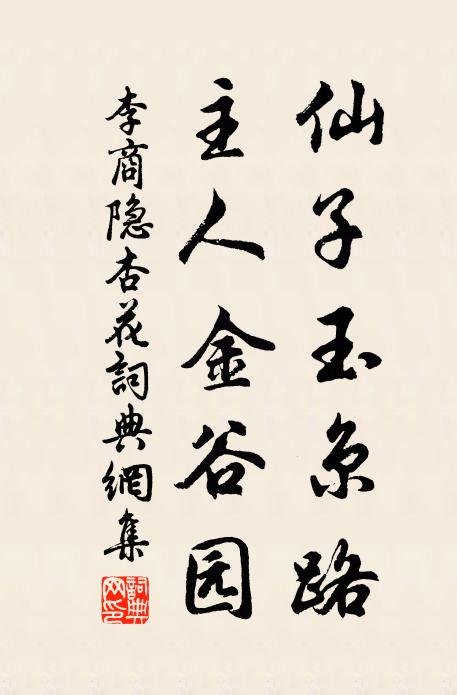 仙子玉京路
主人金谷园
李商隐杏花詞典網集
詞典网印